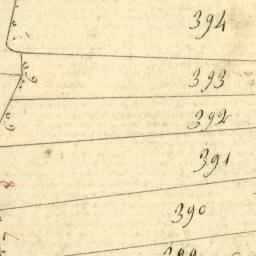 394
393
392
391
390
389